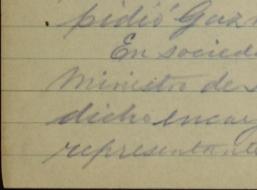 pidió Guz
En socied
Ministro de
dicho encar
representante